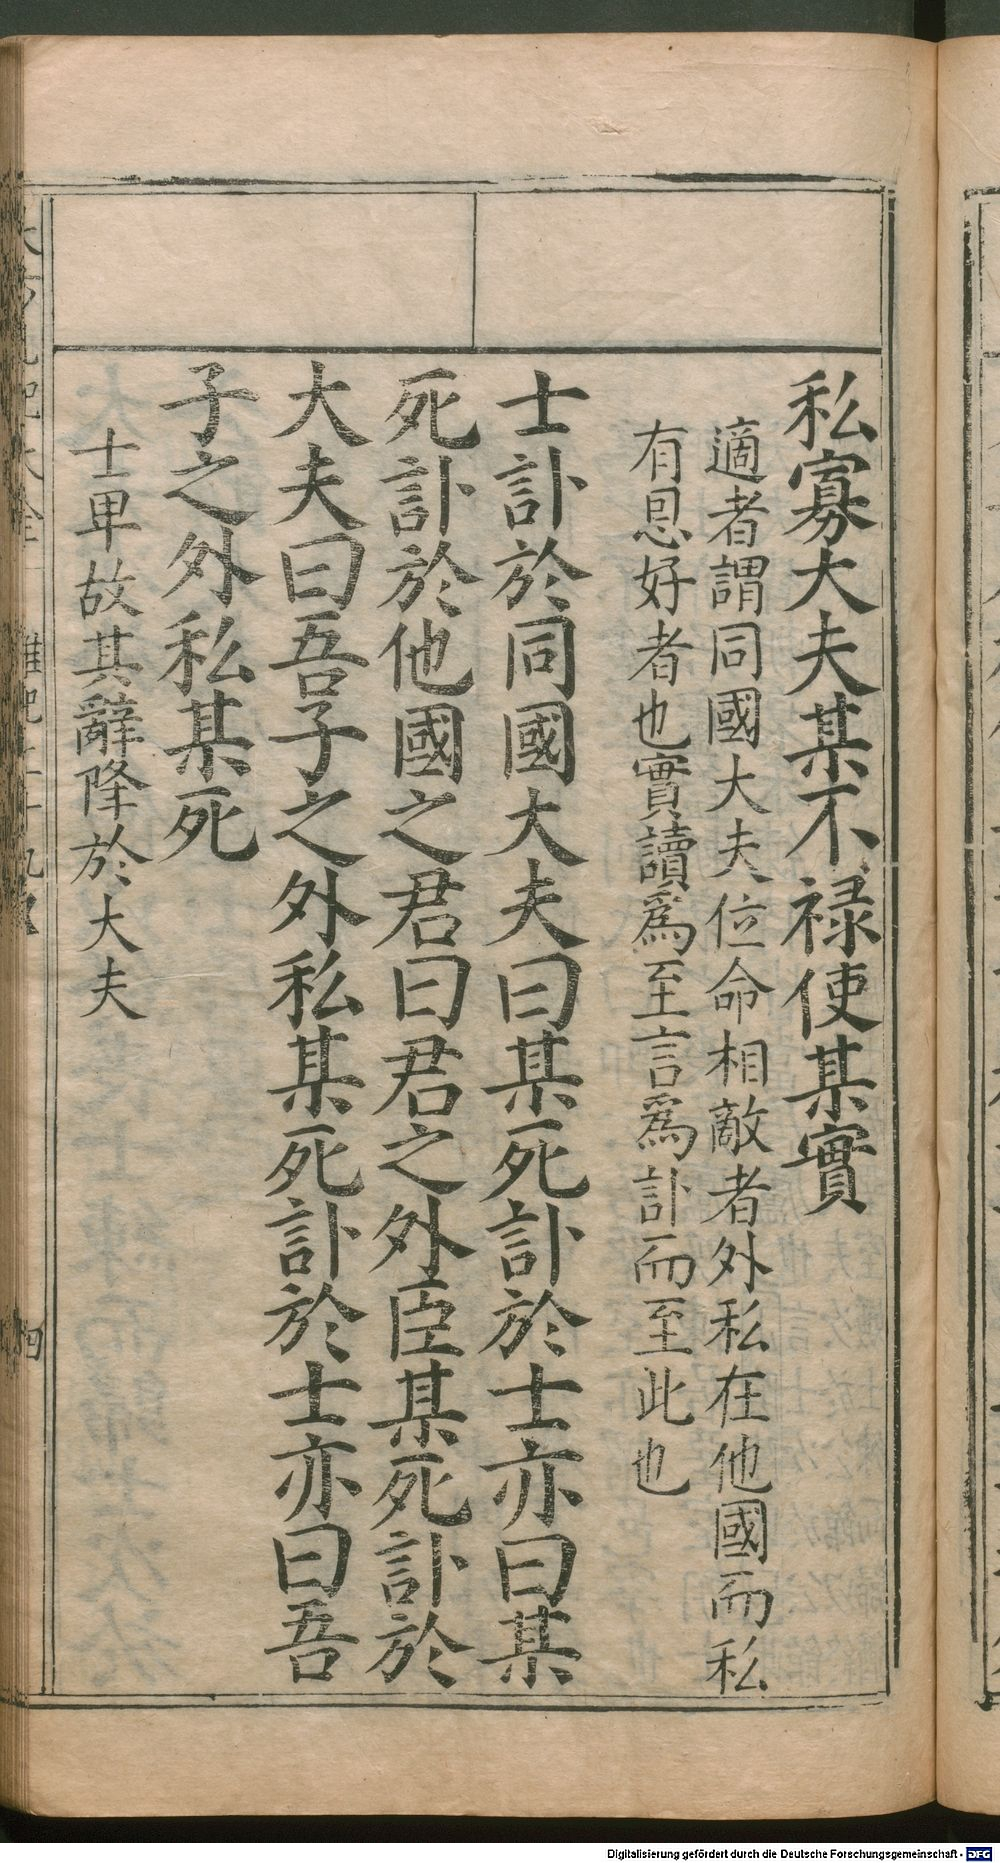 私寡大夫某不禄使某實
適者謂同國大夫位命相敵者外私在他國而私
有恩好者也實讀爲至言爲訃而至此也
士訃於同國大夫曰某死訃於士亦曰某
死訃於他國之君曰君之外臣某死訃於
大夫曰吾子之外私某死訃於士亦曰吾
子之外私某死
士卑故其辭降於大夫
Digitalisierung gefördert durch die Deutsche Forschungsgemeinschaft - DFG